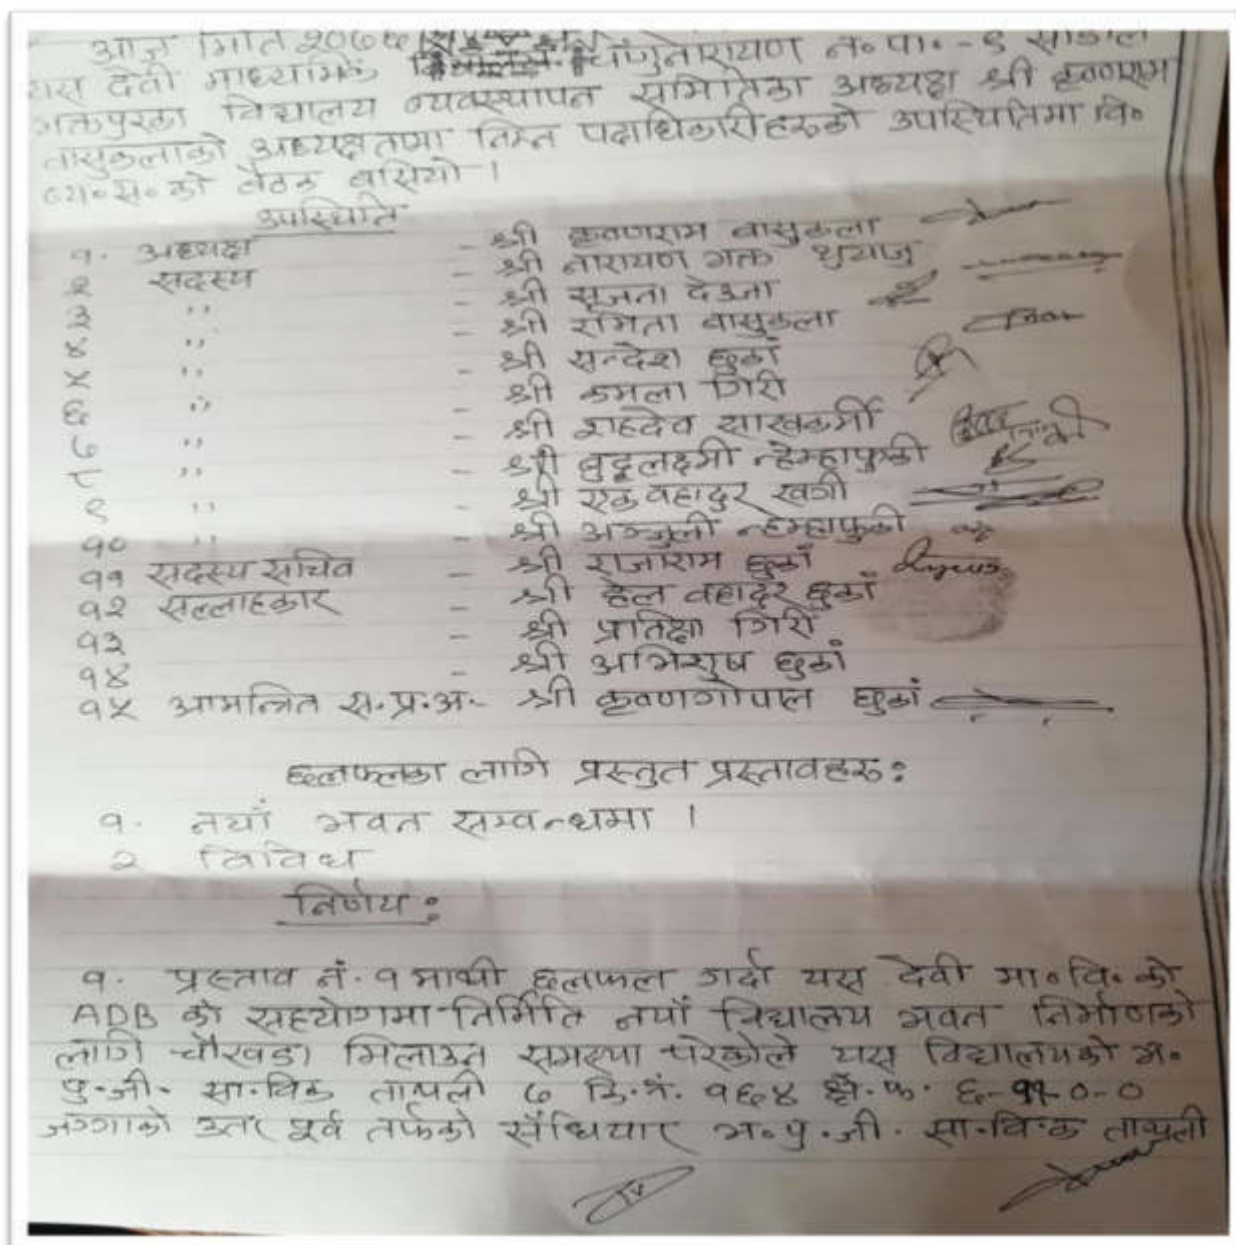 आज मिति २०७६ चाँगुनारायण न॰पा॰-९
यस देवी माध्यमिक विद्यालय व्यवस्थापन समितिका अध्यक्ष श्री कृष्णराम
भक्तपुरका
वासुकलाको अध्यक्षतामा निम्न पदाधिकारीहरुको उपस्थितिमा वि॰
व्य॰स॰को बैठक बसियो ।
उपस्थिति
१. अध्यक्ष - श्री कृष्णराम वासुकला
२ सदस्य - श्री नारायण भक्त थुयाजु
३ ,, - श्री सृजना देउजा
४ ,, - श्री रमिता वासुकला
५ ,, - श्री सन्देश छुकां
६ ,, - श्री कमला गिरी
७ ,, - श्री शहदेव साखकर्मी
८ ,, - श्री बुद्धलक्ष्मी न्हेम्हाफुकी
९ ,, श्री एक वहादुर खत्री
१० ,, - श्री अञ्जुली न्हेम्हाफुकी
११ सदस्य सचिव - श्री राजाराम छुकां
१२ सल्लाहकार - श्री हेल वहादुर छुकां
१३ - श्री प्रतिक्षा गिरी
१४ - श्री अभिशुष छुकां
१५ आमन्त्रित स.प्र.अ.- श्री कृष्णगोपाल छुकां
छलफलका लागि प्रस्तुत प्रस्तावहरु:
१. नयाँ भवन सम्वन्धमा ।
२ विविध
निर्णय:
१. प्रस्ताव नं. १ माथी छलफल गर्दा यस देवी मा॰वि॰को
ADB को सहयोगमा निर्मिति नयाँ विद्यालय भवन निर्माणको
लागि चौखडा मिलाउन समस्या परेकोले यस विद्यालयको भ॰
पु.जी. सा.विक ताथली ७ कि.नं. १६४ क्षे.फ. ६-११-०-०
जग्गाको उत्तर पूर्व तर्फको सँधियार भ॰पु.जी. सा.विक ताथली